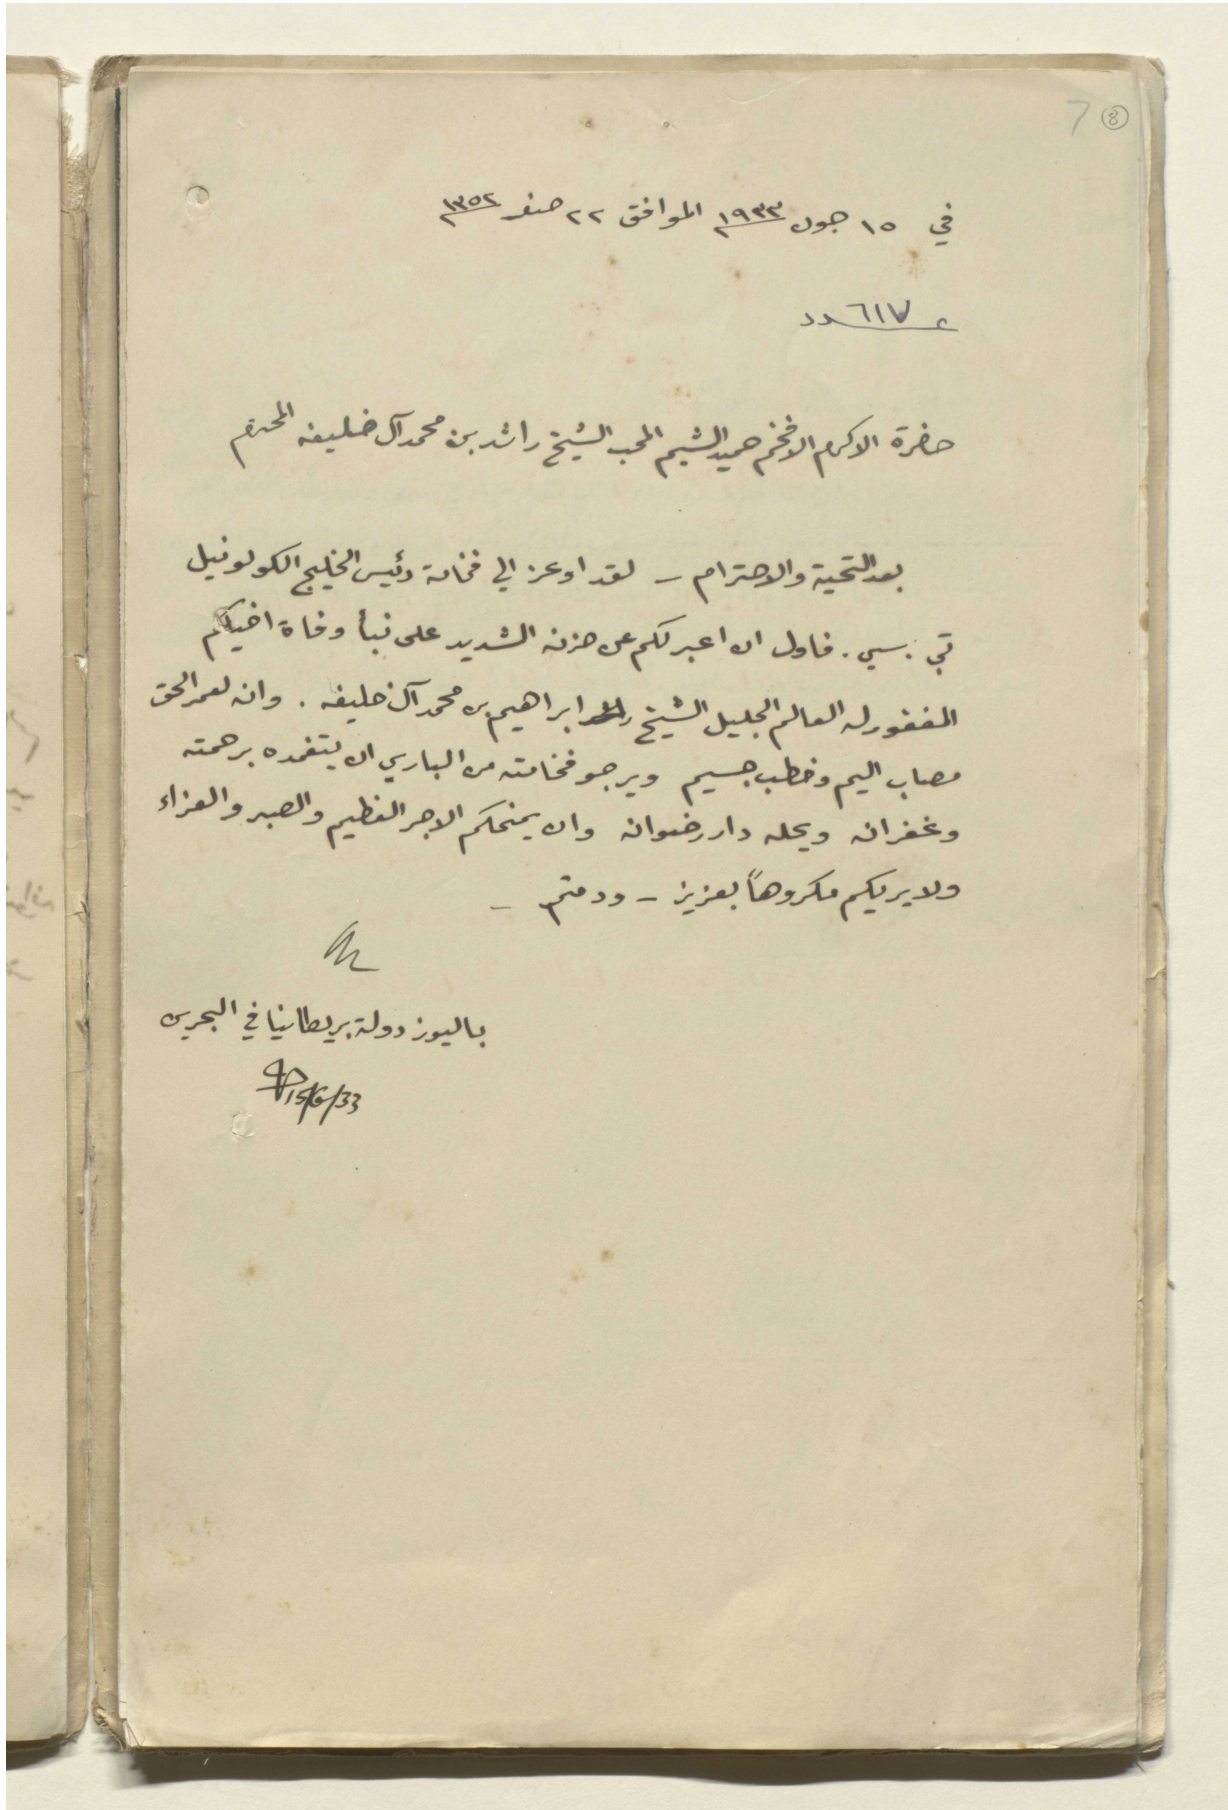 7 8
في ١٥ جون ١٩٣٣ الموافق ٢٢ صفر ١٣٥٢
عدد ٦١٧
حضرة الاكرم الافخم حميد الشيم المحب الشيخ راشد بن محمد آل خليفه المحترم
بعد التحية والاحترام – لقد اوعز الي فخامة رئيس الخليج الكولونيل
تي. سي. فاول ان اعبر لكم عن حزنه الشديد على نبأ وفاة اخيكم
المغفور له العالم الجليل الشيخ ابراهيم بن محمد آل خليفه . وانه لعمر الحق
مصاب اليم وخطب جسيم ويرجو فخامته من الباري ان يتغمده برحمته
وغفرانه ويحله دار رضوانه وان يمنحكم الاجر العظيم والصبر والعزاء
ولا يريكم مكروهاً بعزيز – ودمتم –
باليوز دولة بريطانيا في البحرين
15/6/33